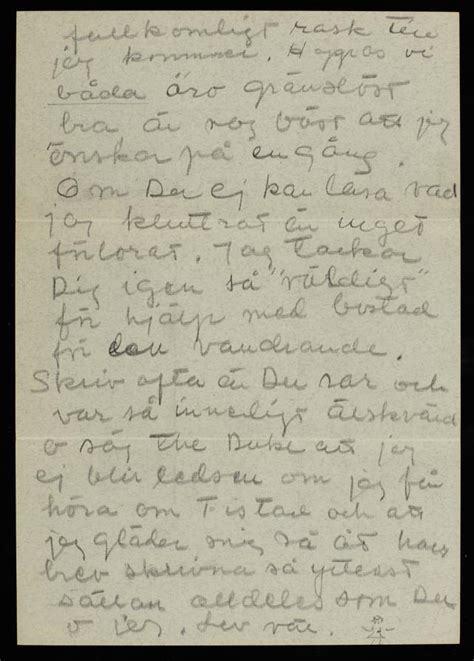 fullkomligt rask till
jag kommer. Hoppas vi
båda äro gränslöst
bra är nog bäst att jag
önskar på en gång.
Om Du ej kan läsa vad
jag kluttrat är inget
förlorat. Jag tackar
Dig igen så "väldigt"
för hjälp med bostad
för den vandrande.
Skriv ofta är Du rar och
var så innerligt älskvärd
o säg The Duke att jag
ej blir ledsen om jag får
höra om Tistad och att
jag gläder mig så åt hans
brev skrivna så ytterst
sällan alldeles som Du
o jag. Lev väl.